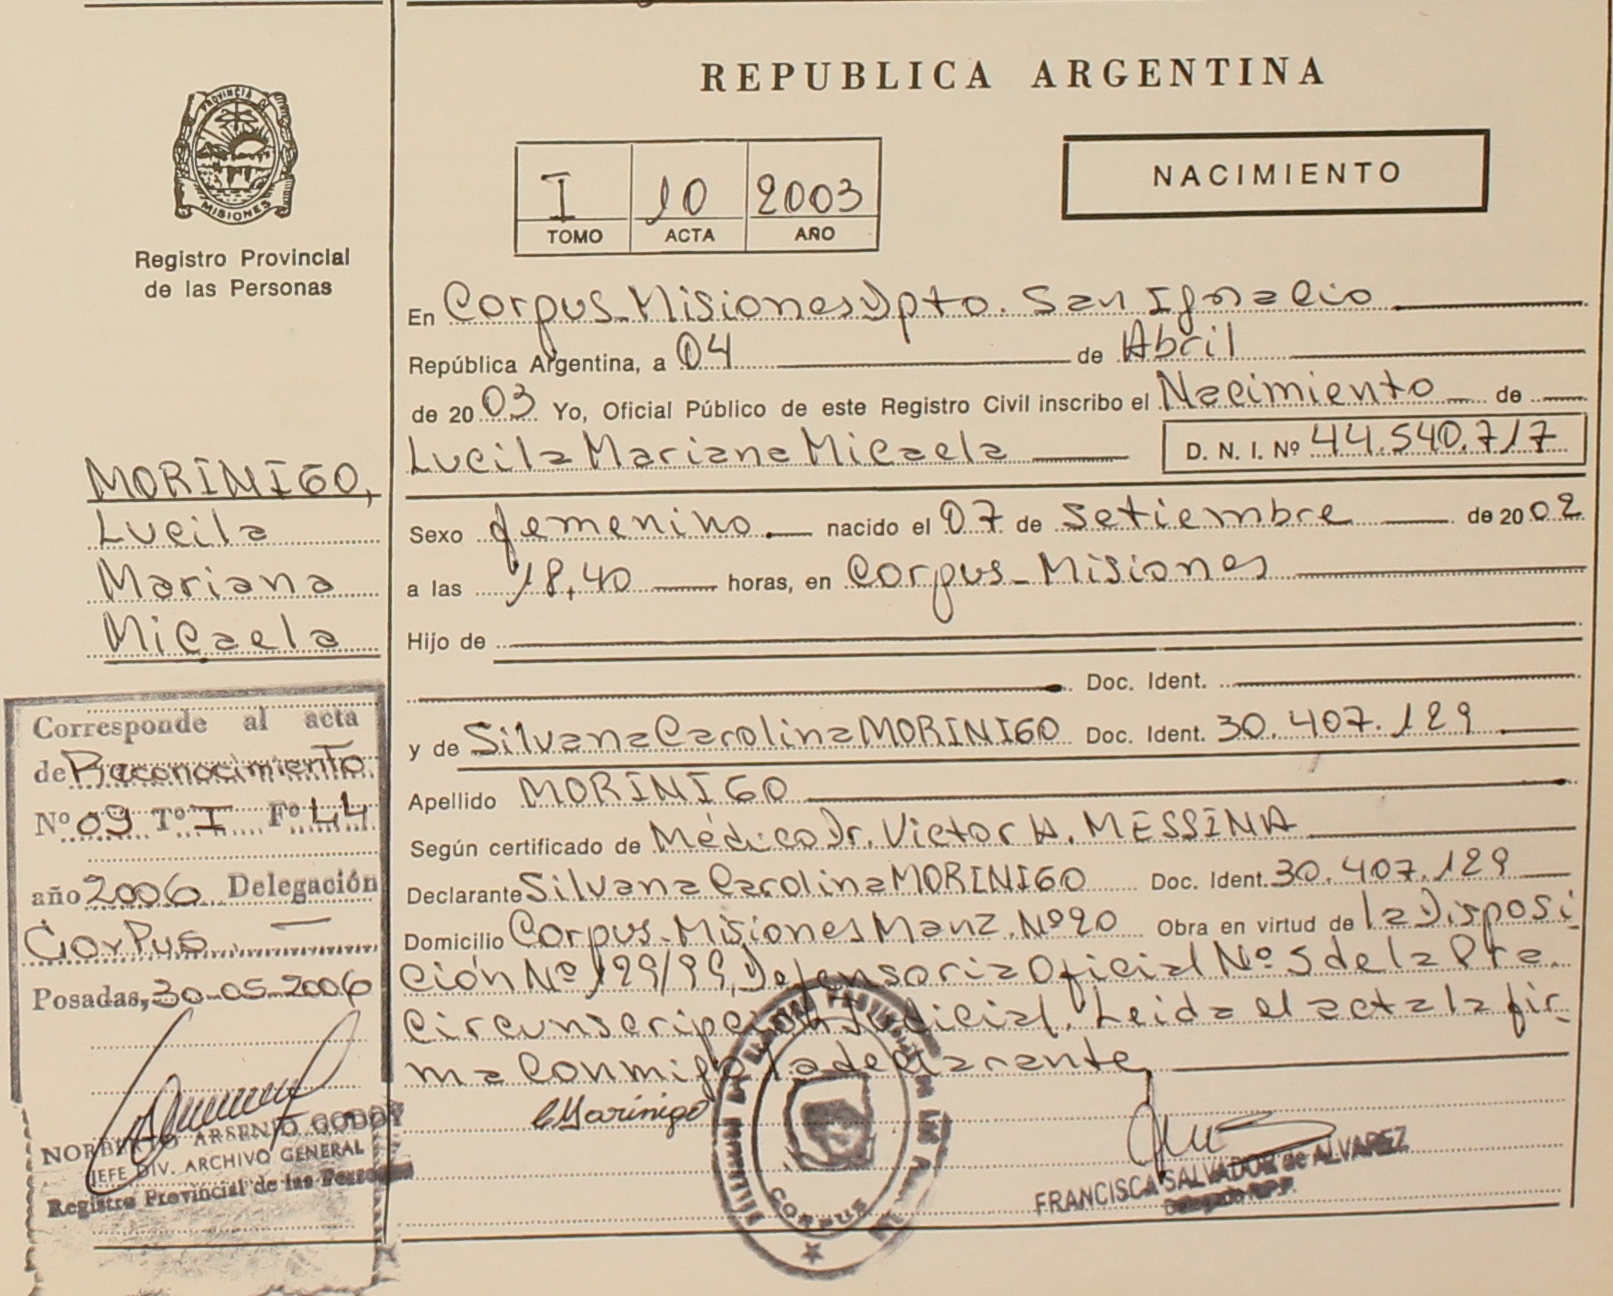 REPUBLICA ARGENTINA
PROVINCIA D
MISIONES
Registro Provincial
de las Personas
I 10 2003
TOMO ACTA AÑO
NACIMIENTO
En Corpus-Misiones Dpto. San Ignacio
República Argentina, a 04 de Abril
de 2003 Yo, Oficial Público de este Registro Civil inscribo el Nacimiento de
Lucila Mariana Micaela D. N. I. Nº 44.540.717
Sexo femenino nacido el 07 de Setiembre de 2002
a las 18,40 horas, en Corpus-Misiones
Hijo de
Doc. Ident.
y de Silvana Carolina MORINIGO Doc. Ident. 30.407.129
Apellido MORINIGO
Según certificado de Médico Dr. Victor H. MESSINA
Declarante Silvana Carolina MORINIGO Doc. Ident. 30.407.129
Domicilio Corpus-Misiones Manz. Nº 20 Obra en virtud de la Disposi-
ción Nº 199/99, Defensoria Oficial Nº 5 de la Pra.
Circunscripción Judicial. Leida el acta la fir-
ma conmigo la declarante
CMorinigo
CORPUS
FRANCISCA SALVADOR de ALVAREZ
Delegado R.P.P.
MORINIGO,
Lucila
Mariana
Micaela
Corresponde al acta
de Reconocimiento
Nº 09 Tº I Fº 44
año 2006 Delegación
Corpus
Posadas, 30-05-2006
NORBERTO ARSENIO GODOY
JEFE DIV. ARCHIVO GENERAL
Registro Provincial de las Personas